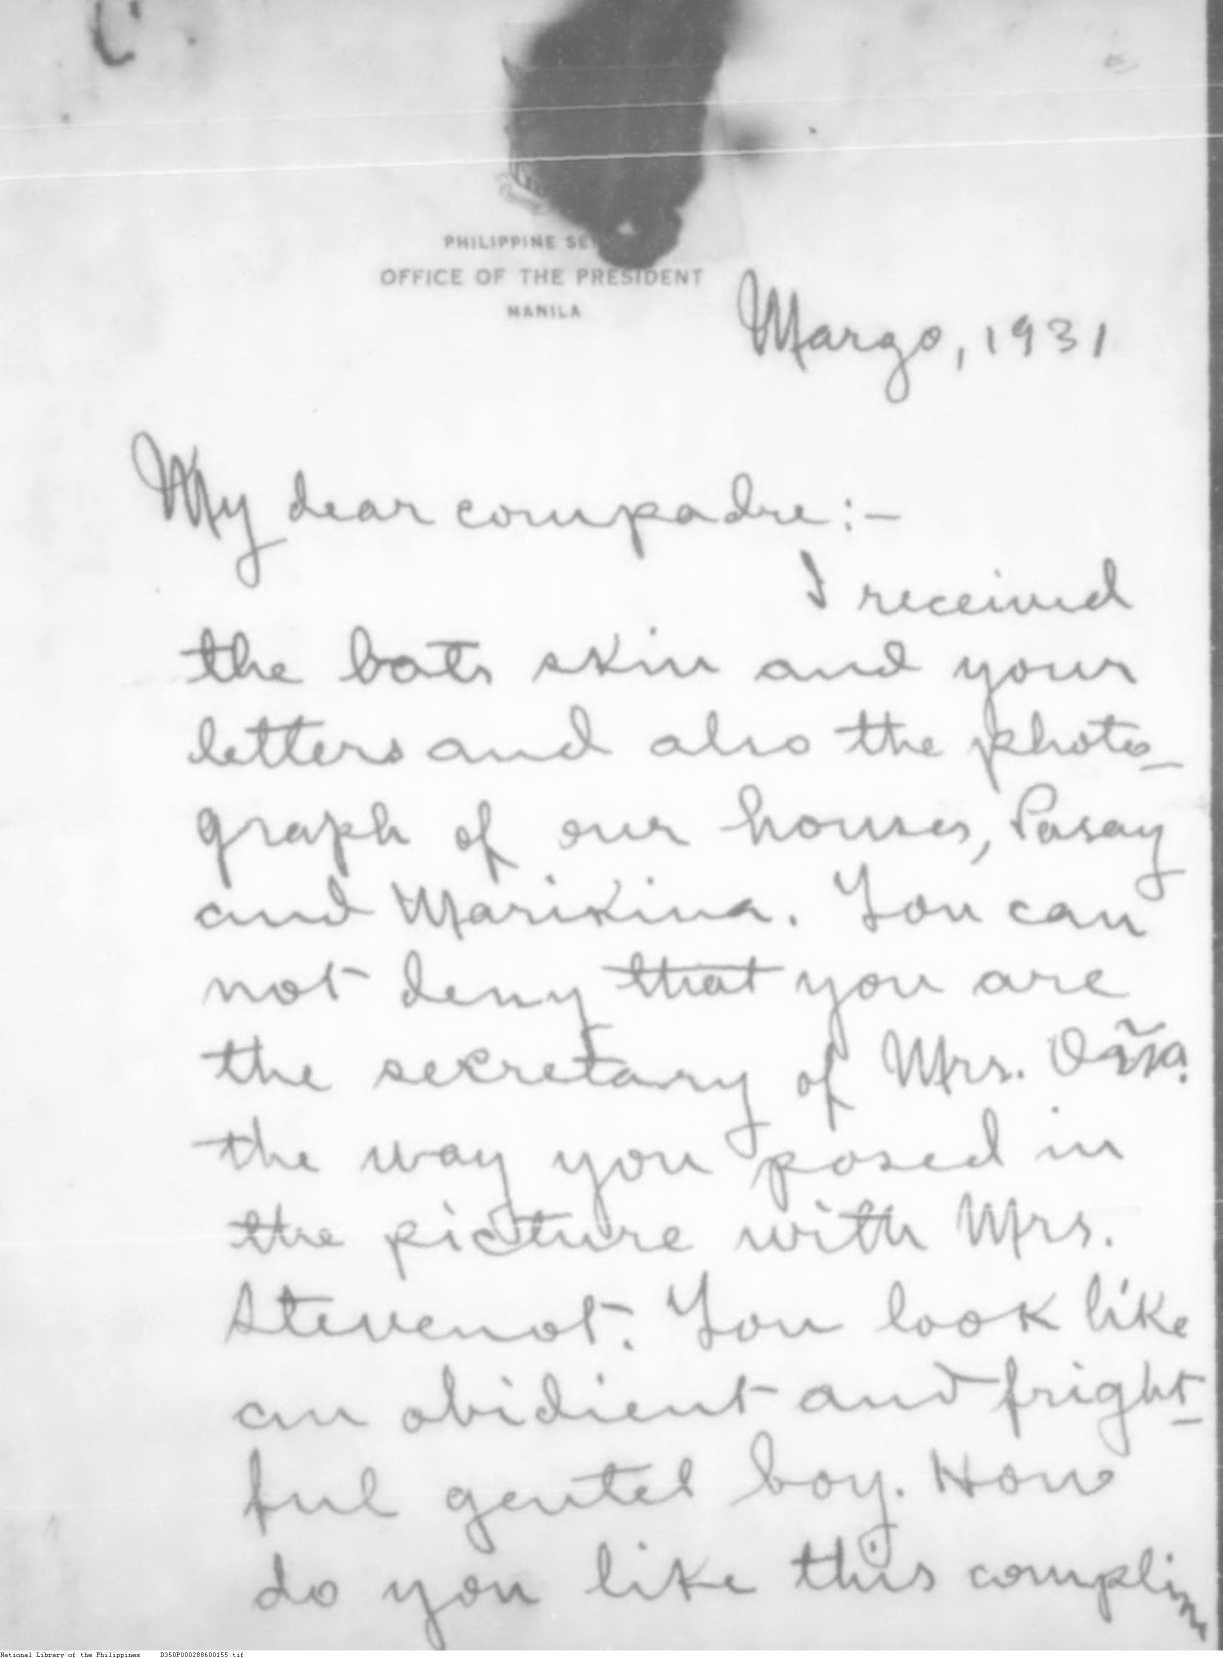 PHILIPPINE SE
OFFICE OF THE PRESIDENT
MANILA
Marzo, 1931
My dear compadre:-
I received
the bats skin and your
letters and also the photo-
graph of our houses, Pasay
and Marikina. You can
not deny that you are
the secretary of Mrs.
the way you posed in
the picture with Mrs.
Stevenot. You look like
an obidient and fright-
ful gentel boy. How
do you like this complim
National Library of the Philippines D350P000288600155.tif